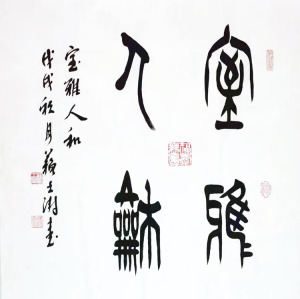 室雅
人龢
室雅人和
戊戌秋月蘇士澍書